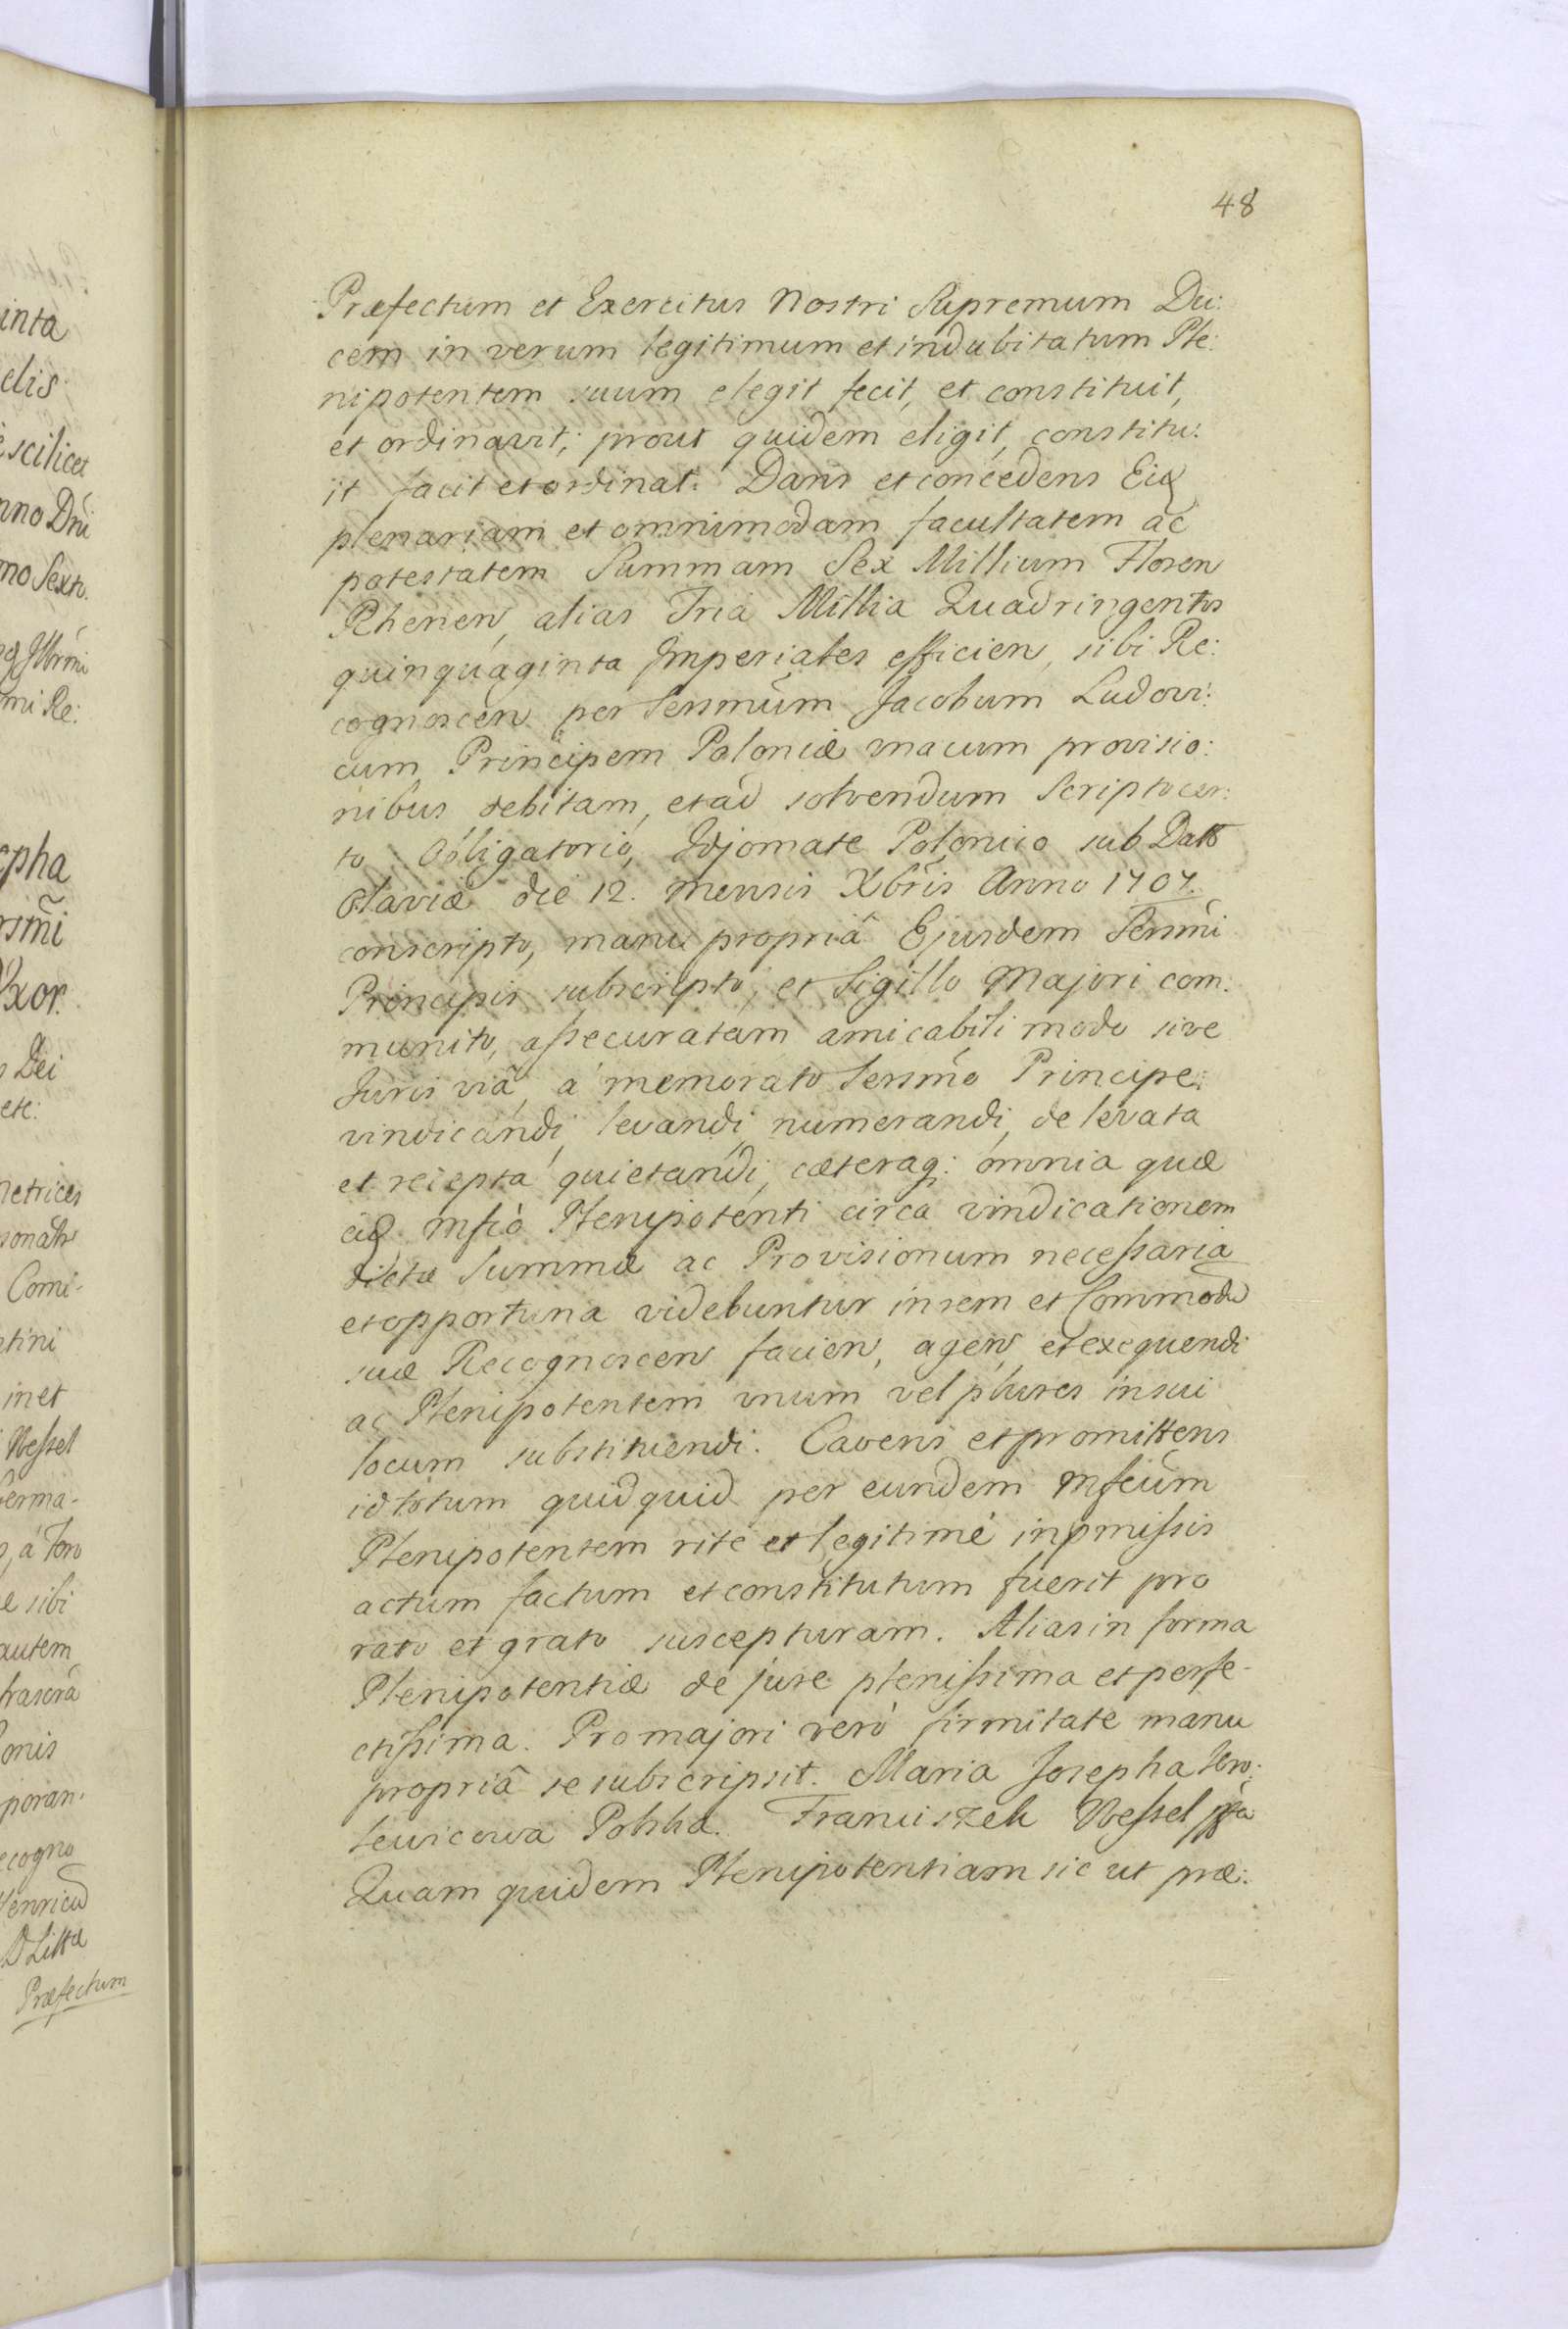 48
Præfectum et Exercitus Nostri Supremum Du:
cem in verum legitimum et indubitatum Ple:
nipotentem suum elegit fecit, et constituit,
et ordinavit; prout quidem eligit, constitu:
it facit et ordinat. Dans et concedens Eid
plenariam et omnimodam facultatem ac
potestatem Summam Sex Millium Floren
Rhenen, alias Tria Millia Quadringentos
quinquaginta Imperiales efficien, sibi Re:
cognoscen per Sersmum Jacobum Ludovi:
cum Principem Poloniæ unacum provisio:
nibus debitam, et ad solvendum Scripto cer:
to Obligatorio, Idjomate Polonico sub Datto
Olaviæ die 12. mensis Xbris Anno 1707.
conscripto, manu propriâ Ejusdem Sersmi
Principis subscripto, et Sigillo Majori com:
munito, assecuratam amicabili modo sive
Juris viâ, à memorato Sersmo Principe:
vindicandi, levandi, numerandi, de levata
et recepta quietandi, cæteraq: omnia quæ
eid Mfico Plenipotenti circa vindicationem
dictæ Summæ ac Provisionum necessaria
et opportuna videbuntur in rem et Commodu
suæ Recognoscen facien, agen, et exequendi
ac Plenipotentem unum vel plures in sui
locum substituendi. Cavens et promittens
id totum quidquid per eundem Mfcum
Plenipotentem ritè et legitimè in pmissis
actum factum et constitutum fuerit pro
rato et grato suscepturam. Alias in forma
Plenipotentiæ de jure plenissima et perfe-
ctissima. Pro majori verò firmitate manu
propriâ se subscripsit. Maria Josepha Kro:
lewicowa Polska. Franciszek Wessel
Quam quidem Plenipotentiam sic ut præ:
inta
elis
scilicet
nno Dni
mo Sexto.
mi Re:
epha
Uxor.
Dei
etc:
Comi-
tini
inet
Wessel
erma-
à Foro
sibi
autem
onis
poran:
ecogno
Henricu
Præfectum